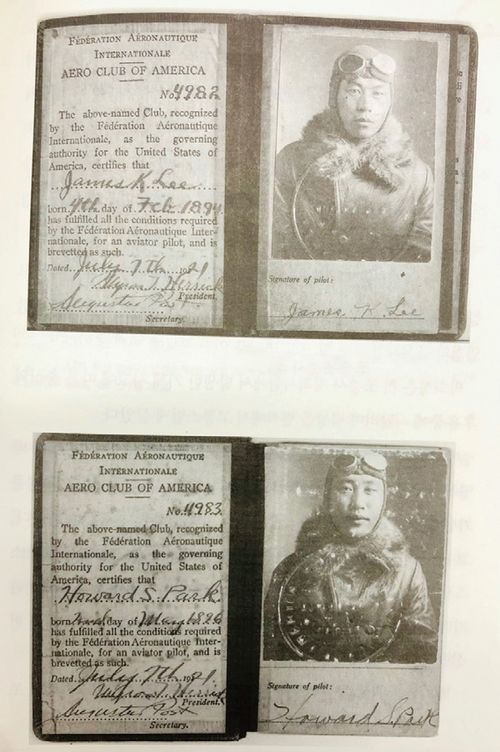 FÉDÉRATION AÉRONAUTIQUE
INTERNATIONALE
AERO CLUB OF AMERICA
No. 4982
The above-named Club, recognized
by the Fédération Aéronautique
Internationale, as the governing
authority for the United States of
America, certifies that
James K. Lee
born 4th day of Feb 1894
has fulfilled all the conditions required
by the Fédération Aéronautique Inter-
nationale, for an aviator pilot, and is
brevetted as such.
Dated July 7th 1921
President.
Augustus Post
Secretary.
Signature of pilot:
James K. Lee
FÉDÉRATION AÉRONAUTIQUE
INTERNATIONALE
AERO CLUB OF AMERICA
No. 4983
The above-named Club, recognized
by the Fédération Aéronautique
Internationale, as the governing
authority for the United States of
America, certifies that
Howard S. Park
born day of 1896
has fulfilled all the conditions required
by the Fédération Aéronautique Inter-
nationale, for an aviator pilot, and is
brevetted as such.
Dated July 7th 1921
President.
Augustus Post
Secretary.
Signature of pilot:
Howard S. Park